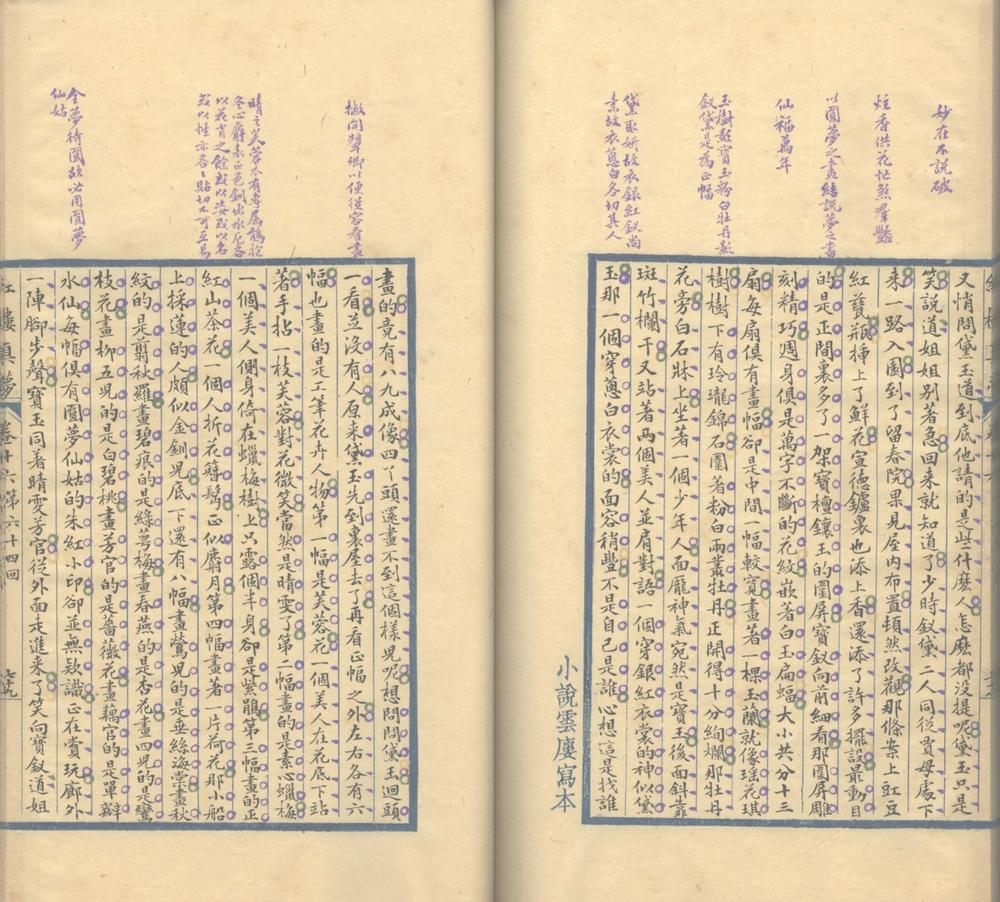 妙在不說破
炷香供花忙煞羣豔
以圓夢之畫結說夢之書
仙福萬年
玉樹影寶玉粉白牡丹影
釵黛是為正幅
黛取妍故衣銀紅釵尚
素故衣蔥白各切其人
又悄問黛玉道到底他請的是些什麽人怎麽都沒提呢黛玉只是
笑說道姐姐別著急回來就知道了少時釵黛二人同從賈母處下
来一路入園到了留春院果見屋内布置頓然改觀那條案上豇豆
紅甆瓶挿上了鮮花宣徳鑪裏也添上香還添了許多擺設最動目
的是正間裏多了一架寶檀鑲玉的圍屏寶釵向前細看那圍屏雕
刻精巧週身俱是萬字不斷的花紋嵌著白玉扁蝠大小共分十三
扇每扇俱有畫幅卻是中間一幅較寬畫著一棵玉蘭就像瑶花琪
樹樹下有玲瓏錦石圍著粉白兩叢牡丹正開得十分絢爛那牡丹
花旁白石牀上坐著一個少年人面龐神氣宛然是寶玉後面斜靠
斑竹欄干又站著兩個美人並肩對語一個穿銀紅衣裳的神似黛
玉那一個穿蔥白衣裳的面容稍豐不是自己是誰心想這是找誰
小說雲廔寫本
撇開顰卿以便從容看畫
晴之芙蓉本有專屬鵑抱
冬心麝表正色釧出水花各
以花肖之餘或以姿或以名
或以性亦各各貼切不可互易
全夢待圓故必用圓夢
仙姑
畫的竟有八九成像四丫頭還畫不到這個樣兒呢想問問黛玉迴頭
一看並沒有人原来黛玉先到裏屋去了再看正幅之外左右各有六
幅也畫的是工筆花卉人物第一幅是芙蓉花一個美人在花底下站
著手拈一枝芙蓉對花微笑當然是晴雯了第二幅畫的是素心蠟梅
一個美人側身倚在蠟梅樹上只露個半身卻是紫鵑第三幅畫的正
紅山茶花一個人折花簪髩正似麝月第四幅畫著一片荷花那小船
上採蓮的人頗似金釧兒底下還有八幅畫鶯兒的是垂絲海棠畫秋
紋的是翦秋羅畫碧痕的是綠萼梅畫春燕的是杏花畫四兒的是鸞
枝花畫柳五兒的是白碧桃畫芳官的是薔薇花畫藕官的是單瓣
水仙每幅俱有圓夢仙姑的朱紅小印卻並無欵識正在賞玩廊外
一陣腳步聲寶玉同著晴雯芳官從外面走進来了笑向寶釵道姐
紅樓真夢
卷廿六第六十四回